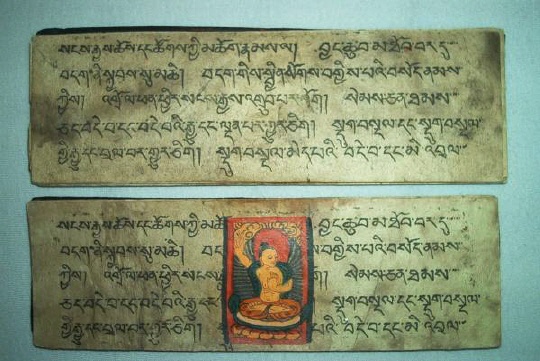 སངས་རྒྱས་ཆོས་དང་ཚོགས་ཀྱི་མཆོག་རྣམས་ལ། བྱང་ཆུབ་མ་ཐོབ་བར་དུ་
བདག་ནི་སྐྱབས་སུ་མཆི། བདག་གིས་སྦྱིན་སོགས་བགྱིས་པའི་བསོད་ནམས་
ཀྱིས། འགྲོ་ལ་ཕན་ཕྱིར་སངས་རྒྱས་འགྲུབ་པར་ཤོག། སེམས་ཅན་ཐམས་
ཅད་བདེ་བ་དང་བདེ་བའི་རྒྱུ་དང་ལྡན་པར་གྱུར་ཅིག། སྡུག་བསྔལ་དང་སྡུག་བསྔལ་
གྱི་རྒྱུ་དང་བྲལ་བར་གྱུར་ཅིག། སྡུག་བསྔལ་མེད་པའི་བདེ་བ་དང་མི་འབྲལ་
སངས་རྒྱས་ཆོས་དང་ཚོགས་ཀྱི་ བྱང་ཆུབ་མ་ཐོབ་བར་དུ་
བདག་ནི་སྐྱབས་སུ་མཆི། བགྱིས་པའི་བསོད་ནམས་
ཀྱིས། འགྲོ་ལ་ཕན་ཕྱིར་སངས་ སེམས་ཅན་ཐམས་
ཅད་བདེ་བ་དང་བདེ་བའི་རྒྱུ་ སྡུག་བསྔལ་དང་སྡུག་བསྔལ་
གྱི་རྒྱུ་དང་བྲལ་བར་གྱུར་ཅིག། བདེ་བ་དང་མི་འབྲལ་